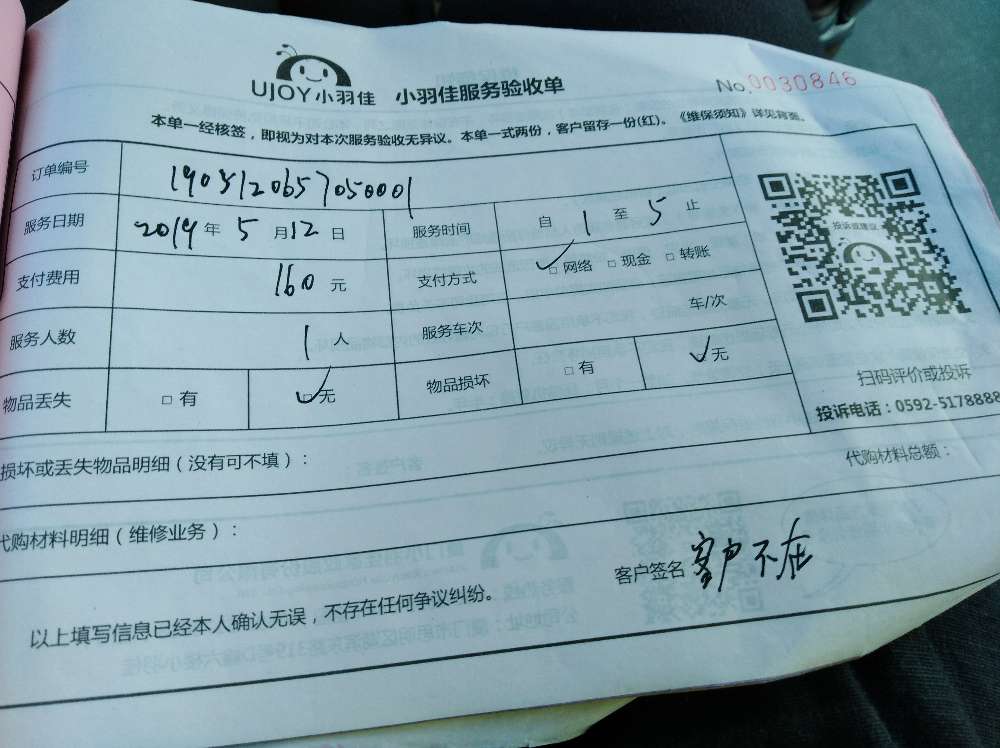 UJOY小羽佳 小羽佳服务验收单 No.0030846
本单一经核签，即视为对本次服务验收无异议。本单一式两份，客户留存一份(红)。《维保须知》详见背面。
订单编号 1905120657050001
服务日期 2019年5月12日 服务时间 自1至5止
支付费用 160元 支付方式 ☑网络 □现金 □转账
服务人数 1人 服务车次 车/次
物品丢失 □有 ☑无 物品损坏 □有 ☑无
投诉或建议
扫码评价或投诉
投诉电话：0592-5178888
损坏或丢失物品明细（没有可不填）：
代购材料明细（维修业务）： 代购材料总额：
以上填写信息已经本人确认无误，不存在任何争议纠纷。 客户签名 客户不在